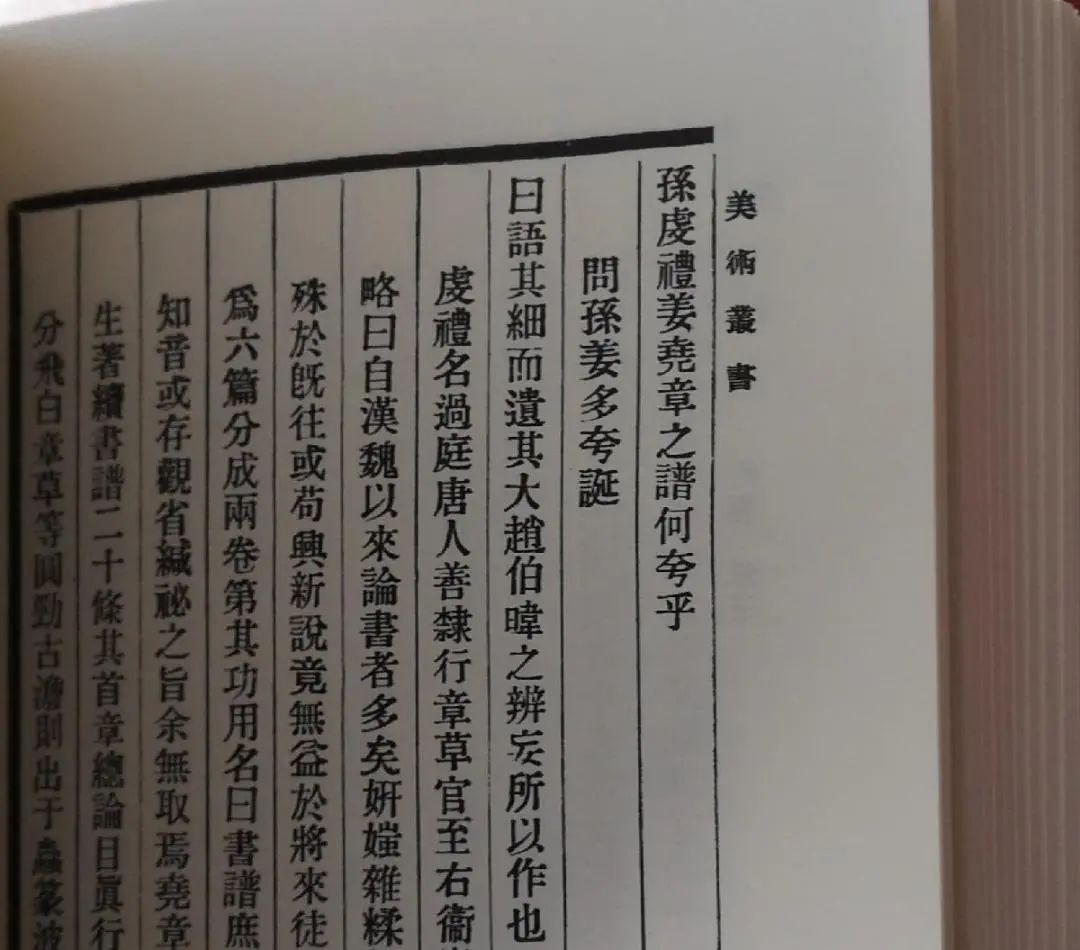 美術叢書
孫虔禮姜堯章之譜何夸乎
問孫姜多夸誕
曰語其細而遺其大趙伯暐之辨妄所以作也
虔禮名過庭唐人善隸行章草官至右衞
略曰自漢魏以來論書者多矣妍媸雜糅
殊於旣往或苟興新說竟無益於將來徒
爲六篇分成兩卷第其功用名曰書譜庶
知音或存觀省緘祕之旨余無取焉堯章
生著續書譜二十條其首章總論曰眞行
分飛白章草等圓勁古澹則出于蟲篆波